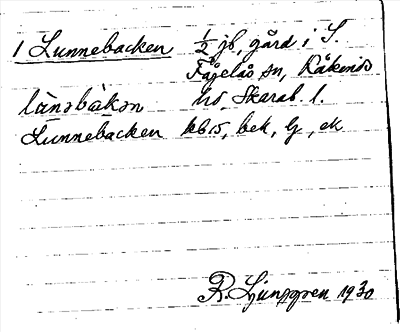 1 Lunnebacken ½ jb, gård i S.
Fågelås sn, Kåkinds
lùnǝbàkǝn hd, Skarab. l.
Lunnebacken kb15, bek, G, ek
R. Ljunggren 1930